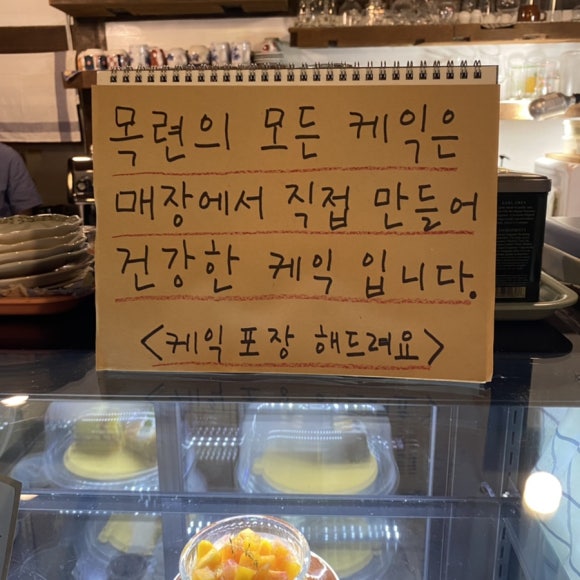 목련의 모든 케익은
매장에서 직접 만들어
건강한 케익 입니다.
<케익 포장 해드려요>